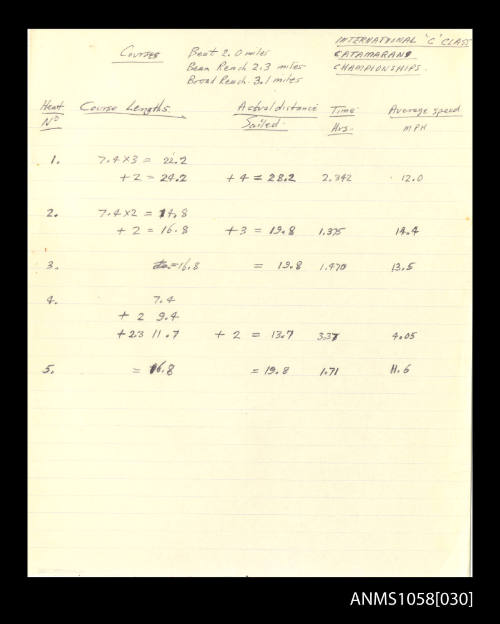 INTERNATIONAL 'C' CLASS
CATAMARANS
CHAMPIONSHIPS.
Courses Beat 2.0 miles
Beam Reach 2.3 miles
Broad Reach. 3.1 miles
Heat Course Lengths. Actual distance Time Average speed
No Sailed. Hrs. MPH
1. 7.4x3 = 22.2
+ 2 = 24.2 + 4 = 28.2 2.342 12.0
2. 7.4x2 = 14.8
+ 2 = 16.8 + 3 = 19.8 1.375 14.4
3. = 16.8 = 19.8 1.470 13.5
4. 7.4
+ 2 9.4
+ 2.3 11.7 + 2 = 13.7 3.37 4.05
5. = 16.8 = 19.8 1.71 11.6
ANMS1058[030]